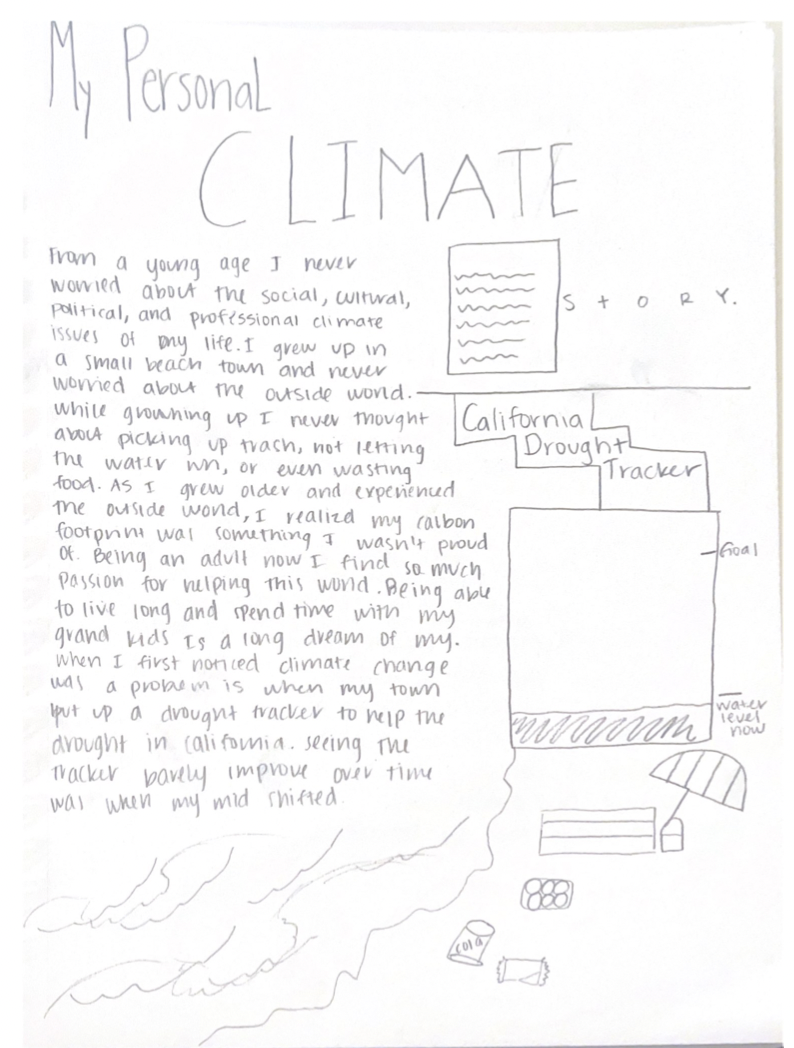 My Personal
CLIMATE
STORY.
From a young age I never
worried about the social, cultural,
political, and professional climate
issues of my life. I grew up in
a small beach town and never
worried about the outside world.
while growning up I never thought
about picking up trach, not letting
the water run, or even wasting
food. As I grew older and experienced
the outside world, I realizd my carbon
footprint was something I wasn't proud
of. Being an adult now I find so much
passion for helping this world. Being able
to live long and spend time with my
grand kids Is a long dream of my.
When I first noticed climate change
was a problem is when my town
put up a drought tracker to help the
drought in california. seeing the
Tracker barely improve over time
was when my mid shifted.
California
Drought
Tracker
Goal
water
level
now
cola